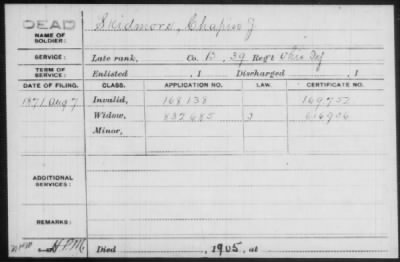 DEAD
NAME OF SOLDIER: Skidmore, Chapin J
SERVICE: Late rank, Co. B, 39 Reg't Ohio Inf
TERM OF SERVICE: Enlisted , 1 Discharged , 1
DATE OF FILING. CLASS. APPLICATION NO. LAW. CERTIFICATE NO.
1871 Aug 7 Invalid, 168138 169752
Widow, 832685 616906
Minor,
ADDITIONAL SERVICES:
REMARKS:
Died , 1905, at